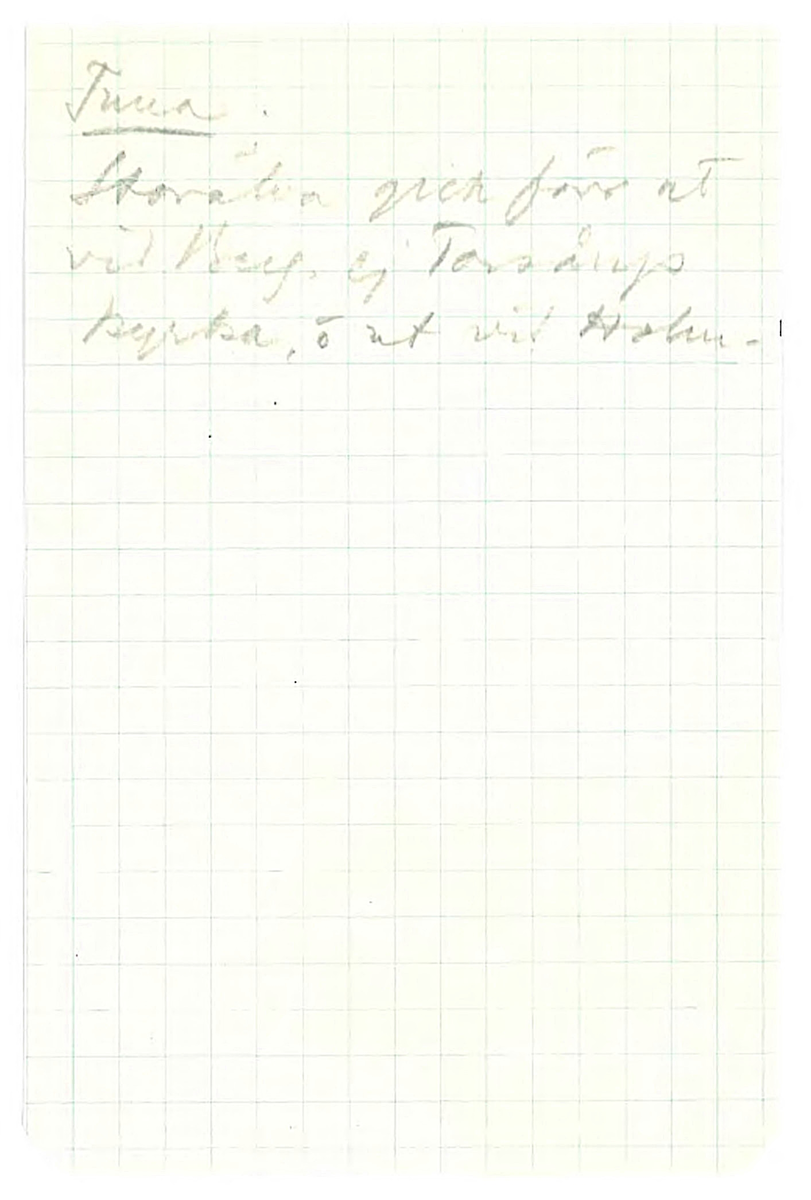 Tuna
Storälva gick förr ut
vid Berg. ej Torsångs
kyrka, o ut vid Holm-